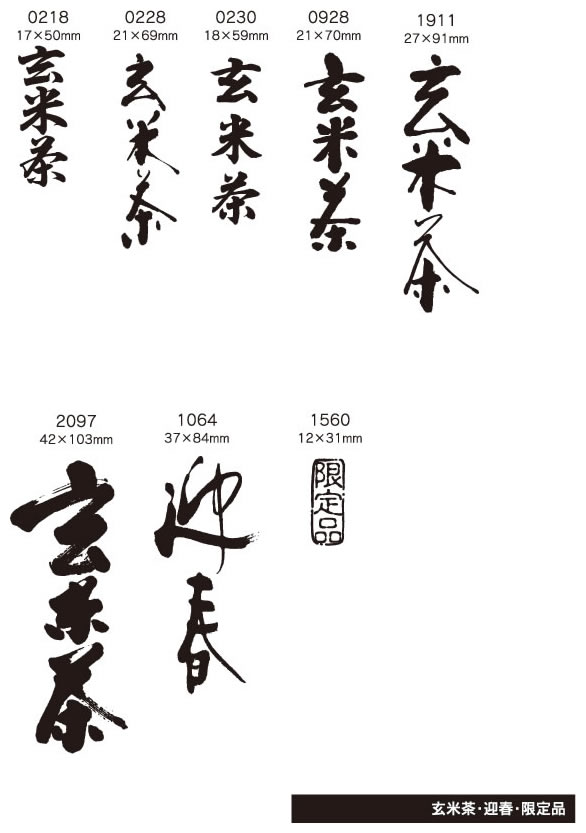 0218
17×50mm
玄米茶
0228
21×69mm
玄米茶
0230
18×59mm
玄米茶
0928
21×70mm
玄米茶
1911
27×91mm
玄米茶
2097
42×103mm
玄米茶
1064
37×84mm
迎春
1560
12×31mm
限定品
玄米茶・迎春・限定品